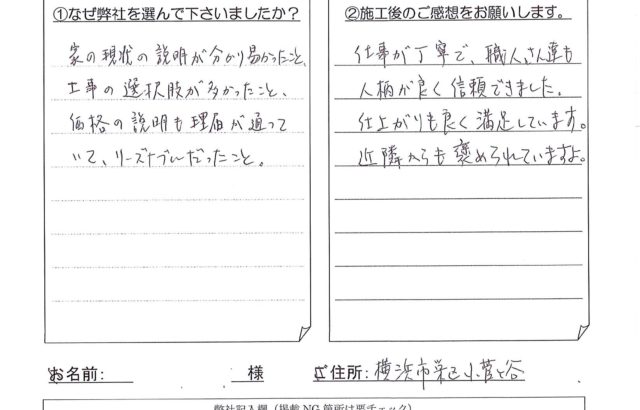 ①なぜ弊社を選んで下さいましたか？
家の現状の説明が分かり易かったこと、
工事の選択肢が多かったこと、
価格の説明も理屈が通って
いて、リーズナブルだったこと。
②施工後のご感想をお願いします。
仕事が丁寧で、職人さん達も
人柄が良く信頼できました。
仕上がりも良く満足しています。
近隣からも褒められていますよ。
お名前: 様
ご住所: 横浜市栄区小菅ヶ谷
弊社記入欄（掲載NG箇所は要チェック）